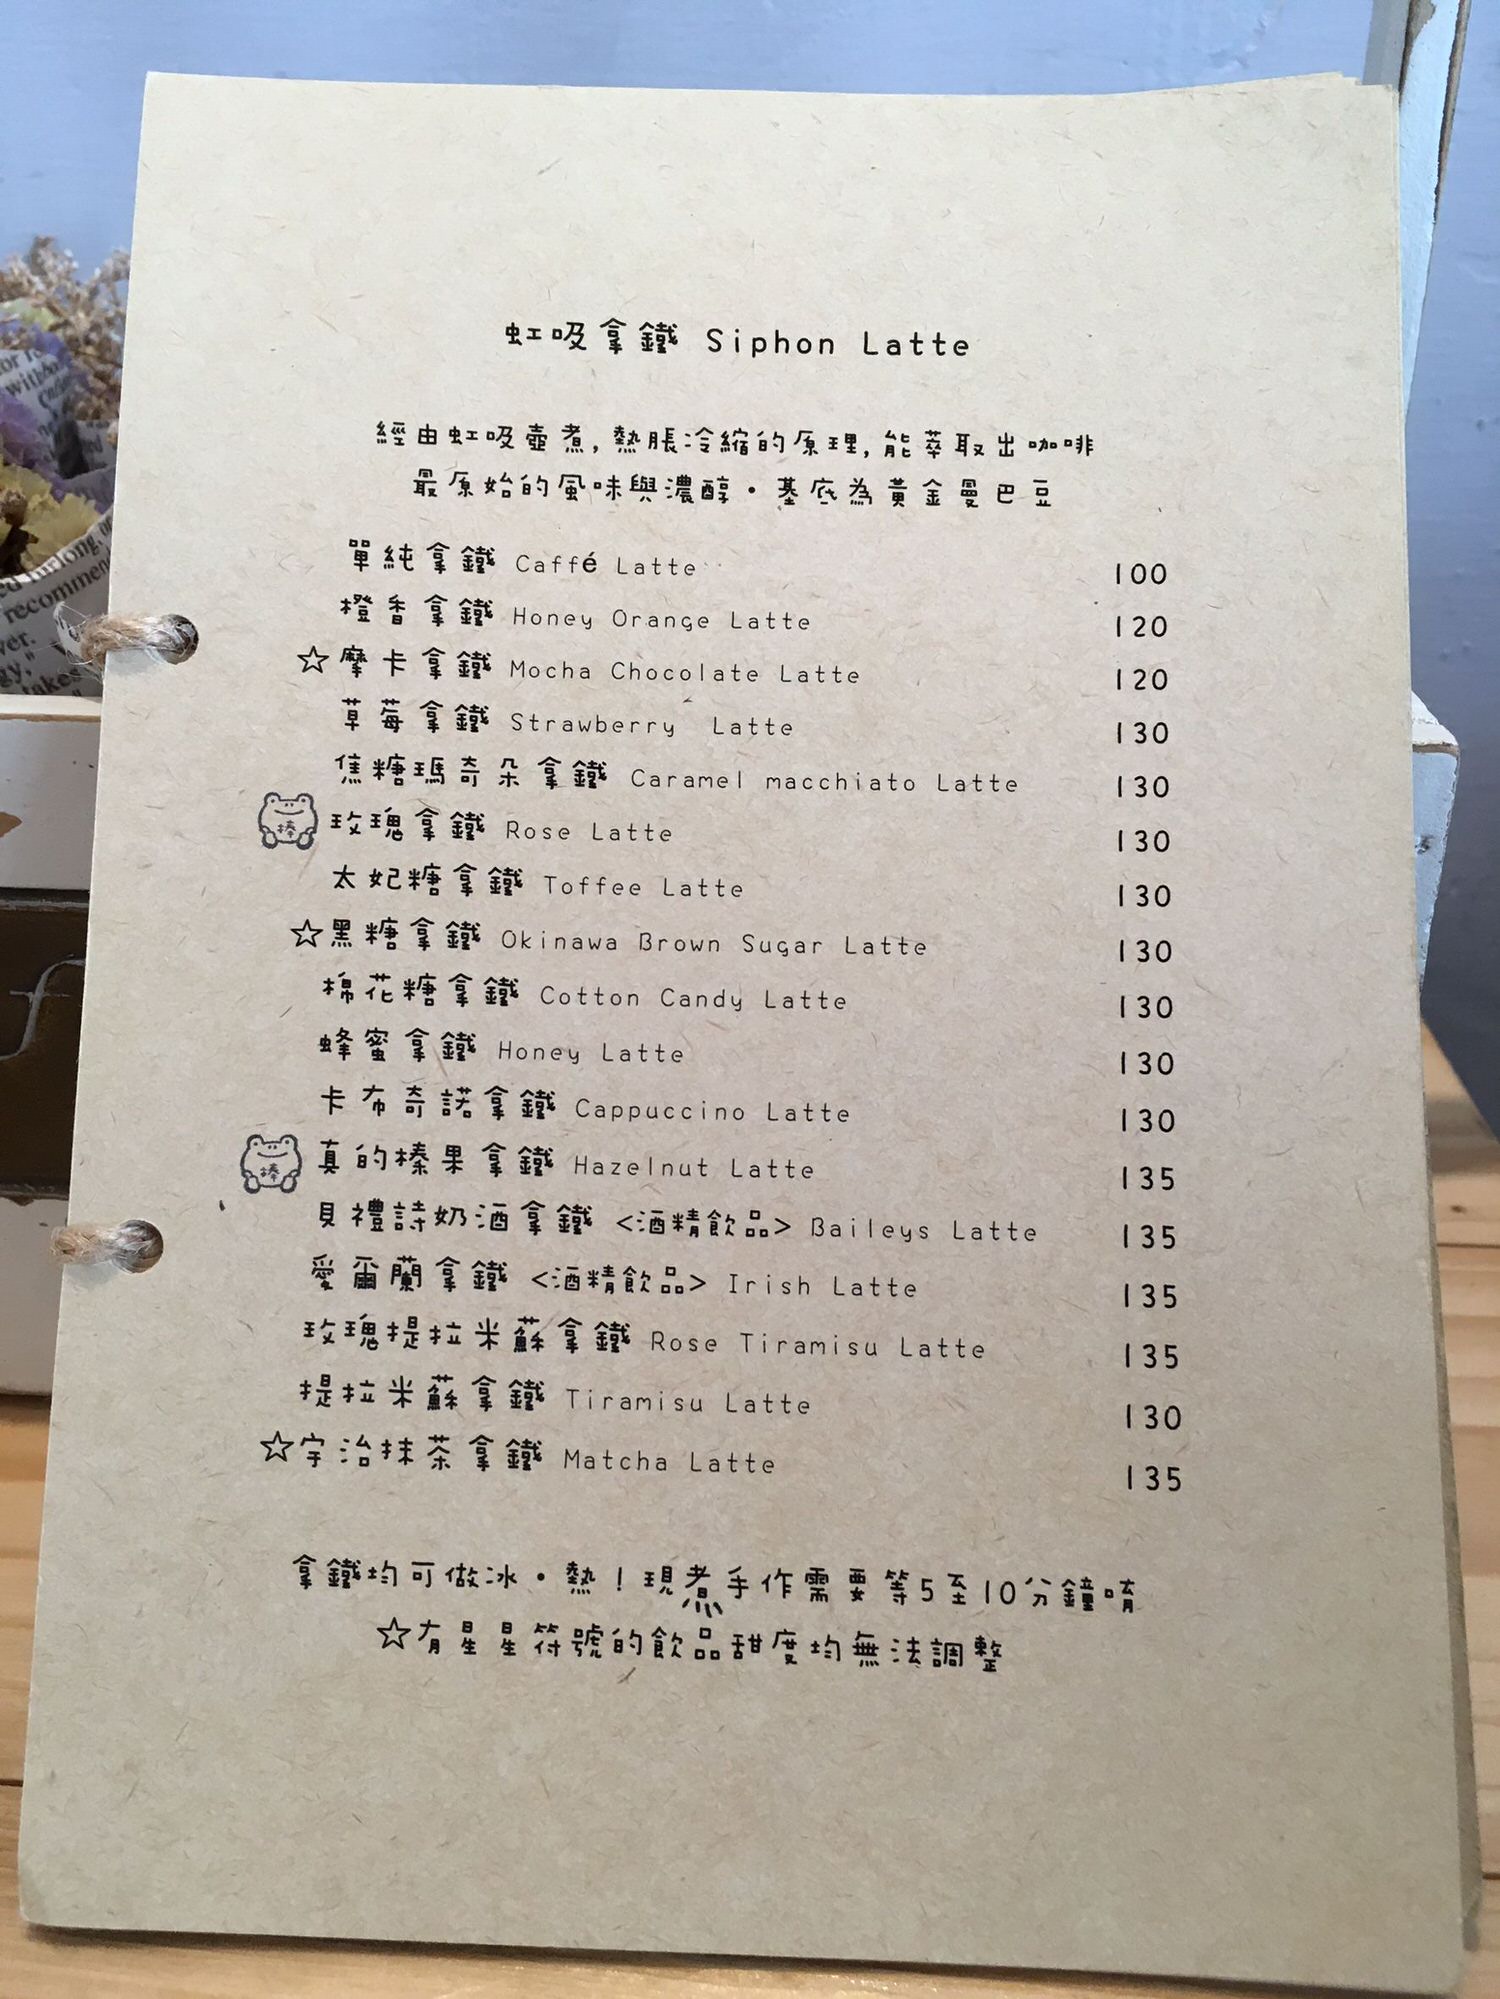 虹吸拿鐵 Siphon Latte
經由虹吸壺煮,熱脹冷縮的原理,能萃取出咖啡
最原始的風味與濃醇・基底為黃金曼巴豆
單純拿鐵 Caffé Latte 100
橙香拿鐵 Honey Orange Latte 120
☆摩卡拿鐵 Mocha Chocolate Latte 120
草莓拿鐵 Strawberry Latte 130
焦糖瑪奇朵拿鐵 Caramel macchiato Latte 130
棒 玫瑰拿鐵 Rose Latte 130
太妃糖拿鐵 Toffee Latte 130
☆黑糖拿鐵 Okinawa Brown Sugar Latte 130
棉花糖拿鐵 Cotton Candy Latte 130
蜂蜜拿鐵 Honey Latte 130
卡布奇諾拿鐵 Cappuccino Latte 130
棒 真的榛果拿鐵 Hazelnut Latte 135
貝禮詩奶酒拿鐵 <酒精飲品> Baileys Latte 135
愛爾蘭拿鐵 <酒精飲品> Irish Latte 135
玫瑰提拉米蘇拿鐵 Rose Tiramisu Latte 135
提拉米蘇拿鐵 Tiramisu Latte 130
☆宇治抹茶拿鐵 Matcha Latte 135
拿鐵均可做冰・熱！現煮手作需要等5至10分鐘唷
☆有星星符號的飲品甜度均無法調整